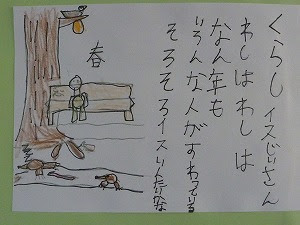 くらし イスじいさん
わしはわしは
なん年も
いろんな人がすわっている
そろそろイス
春